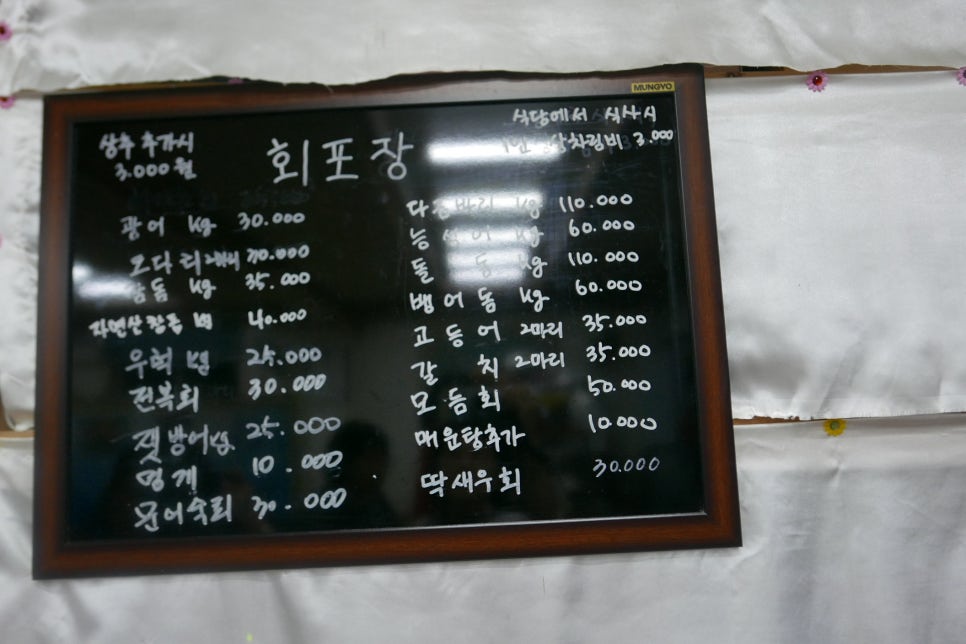 MUNGYO
상추 추가시
3.000원
회포장
식당에서 식사시
1인 상차림비 3.000
광어 kg 30.000
모다리 2마리
참돔 kg 35.000
자연산참돔 kg 40.000
우럭 kg 25.000
전복회 30.000
젯방어 kg. 25.000
멍게 10.000
문어숙회 30.000
다금바리 kg 110.000
능성어 kg 60.000
돌돔 kg 110.000
뱅어돔 kg 60.000
고등어 2마리 35.000
갈치 2마리 35.000
모듬회 50.000
매운탕추가 10.000
딱새우회 30.000